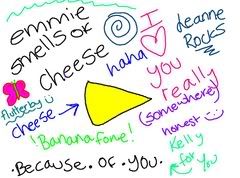 emmie
smells of
cheese
I
you
really
(somewhere)
honest
Jeanne
Rocks
haha
flutterby
cheese
!Bananafone!
Kelly
for you
.Because.Of.You.